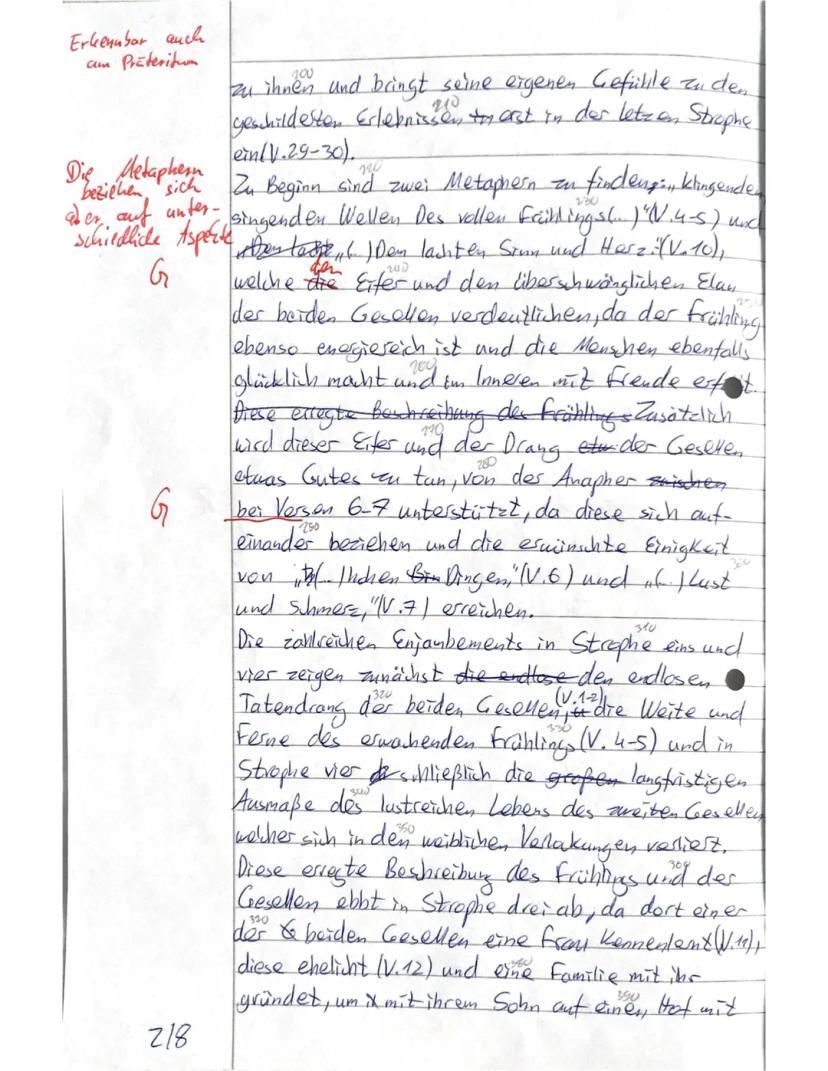 Erkennbar auch
am Präteritum
200
zu ihnen und bringt seine eigenen Gefühle zu den
210
geschilderten Erlebnissen erst in der letzen Strophe
ein(V.29-30).
Die Metaphern
beziehen sich
aber auf unter-
schiedliche Aspekte
Zu Beginn sind zwei Metaphern zu finden: „klingenden,
230
singenden Wellen Des vollen Frühlings(...)"(V.4-5) und
„(...)Den lachten Sinn und Herz."(V.10),
G
welche die den Eifer und den überschwänglichen Elan
240
der beiden Gesellen verdeutlichen, da der Frühling
ebenso energiereich ist und die Menschen ebenfalls
260
glücklich macht und im Inneren mit Freude
Diese erregte Beschreibung des Frühlings Zusätzlich
270
wird dieser Eifer und der Drang etw der Gesellen,
280
etwas Gutes zu tun, von der Anapher zwischen
G
bei Versen 6-7 unterstützt, da diese sich auf-
290
einander beziehen und die erwünschte Einigkeit
300
von „(...)hohen Dingen,"(V.6) und „(...)Lust
und Schmerz,"(V.7) erreichen.
310
Die zahlreichen Enjambements in Strophe eins und
vier zeigen zunächst die endlose den endlosen
320
Tatendrang der beiden Gesellen (V.1-2), die Weite und
330
Ferne des erwachenden Frühlings (V.4-5) und in
Strophe vier schließlich die großen langfristigen
340
Ausmaße des lustreichen Lebens des zweiten Gesellen,
350
welcher sich in den weiblichen Verlakungen verliert.
360
Diese erregte Beschreibung des Frühlings und der
Gesellen ebbt in Strophe drei ab, da dort einer
370
der beiden Gesellen eine Frau kennenlent (V.11),
380
diese ehelicht (V.12) und eine Familie mit ihr
390
gründet, um mit ihrem Sohn auf einen Hof mit
2/8